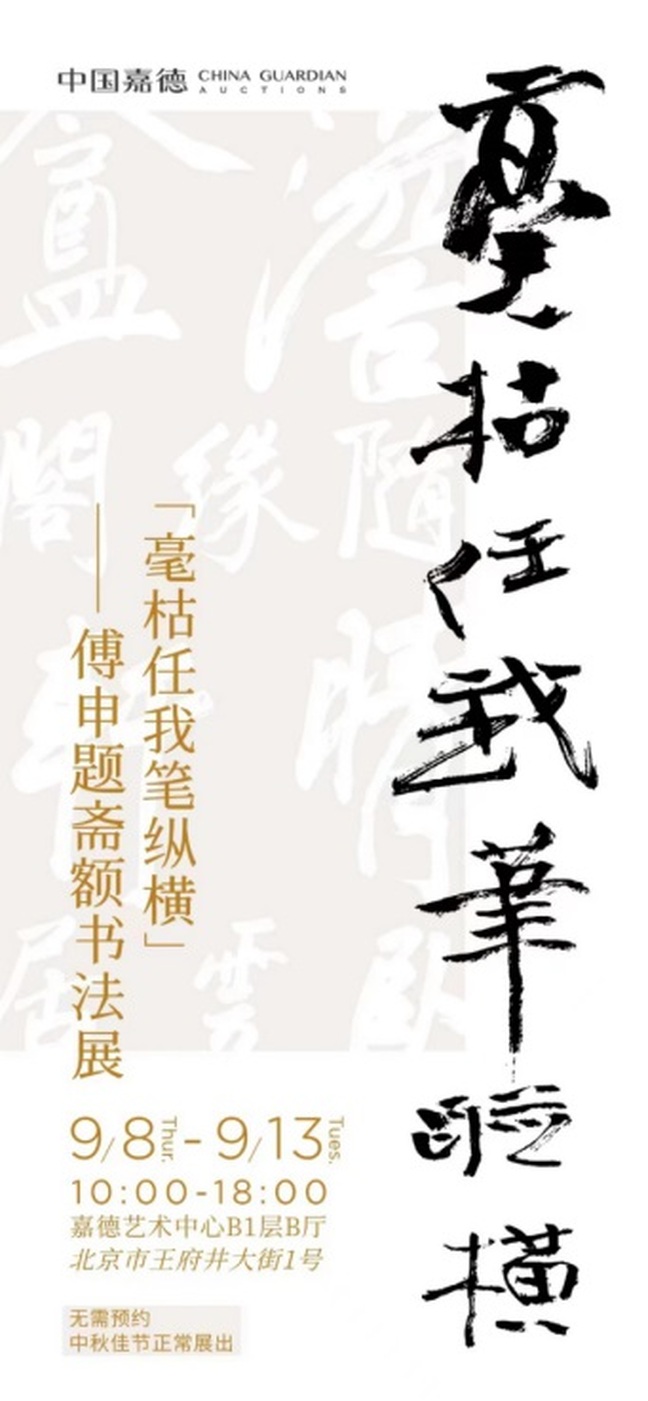 中国嘉德 CHINA GUARDIAN
AUCTIONS
毫枯任我筆縱橫
「毫枯任我笔纵横」
——傅申题斋额书法展
9/8 Thur. - 9/13 Tues.
10:00-18:00
嘉德艺术中心B1层B厅
北京市王府井大街1号
无需预约
中秋佳节正常展出